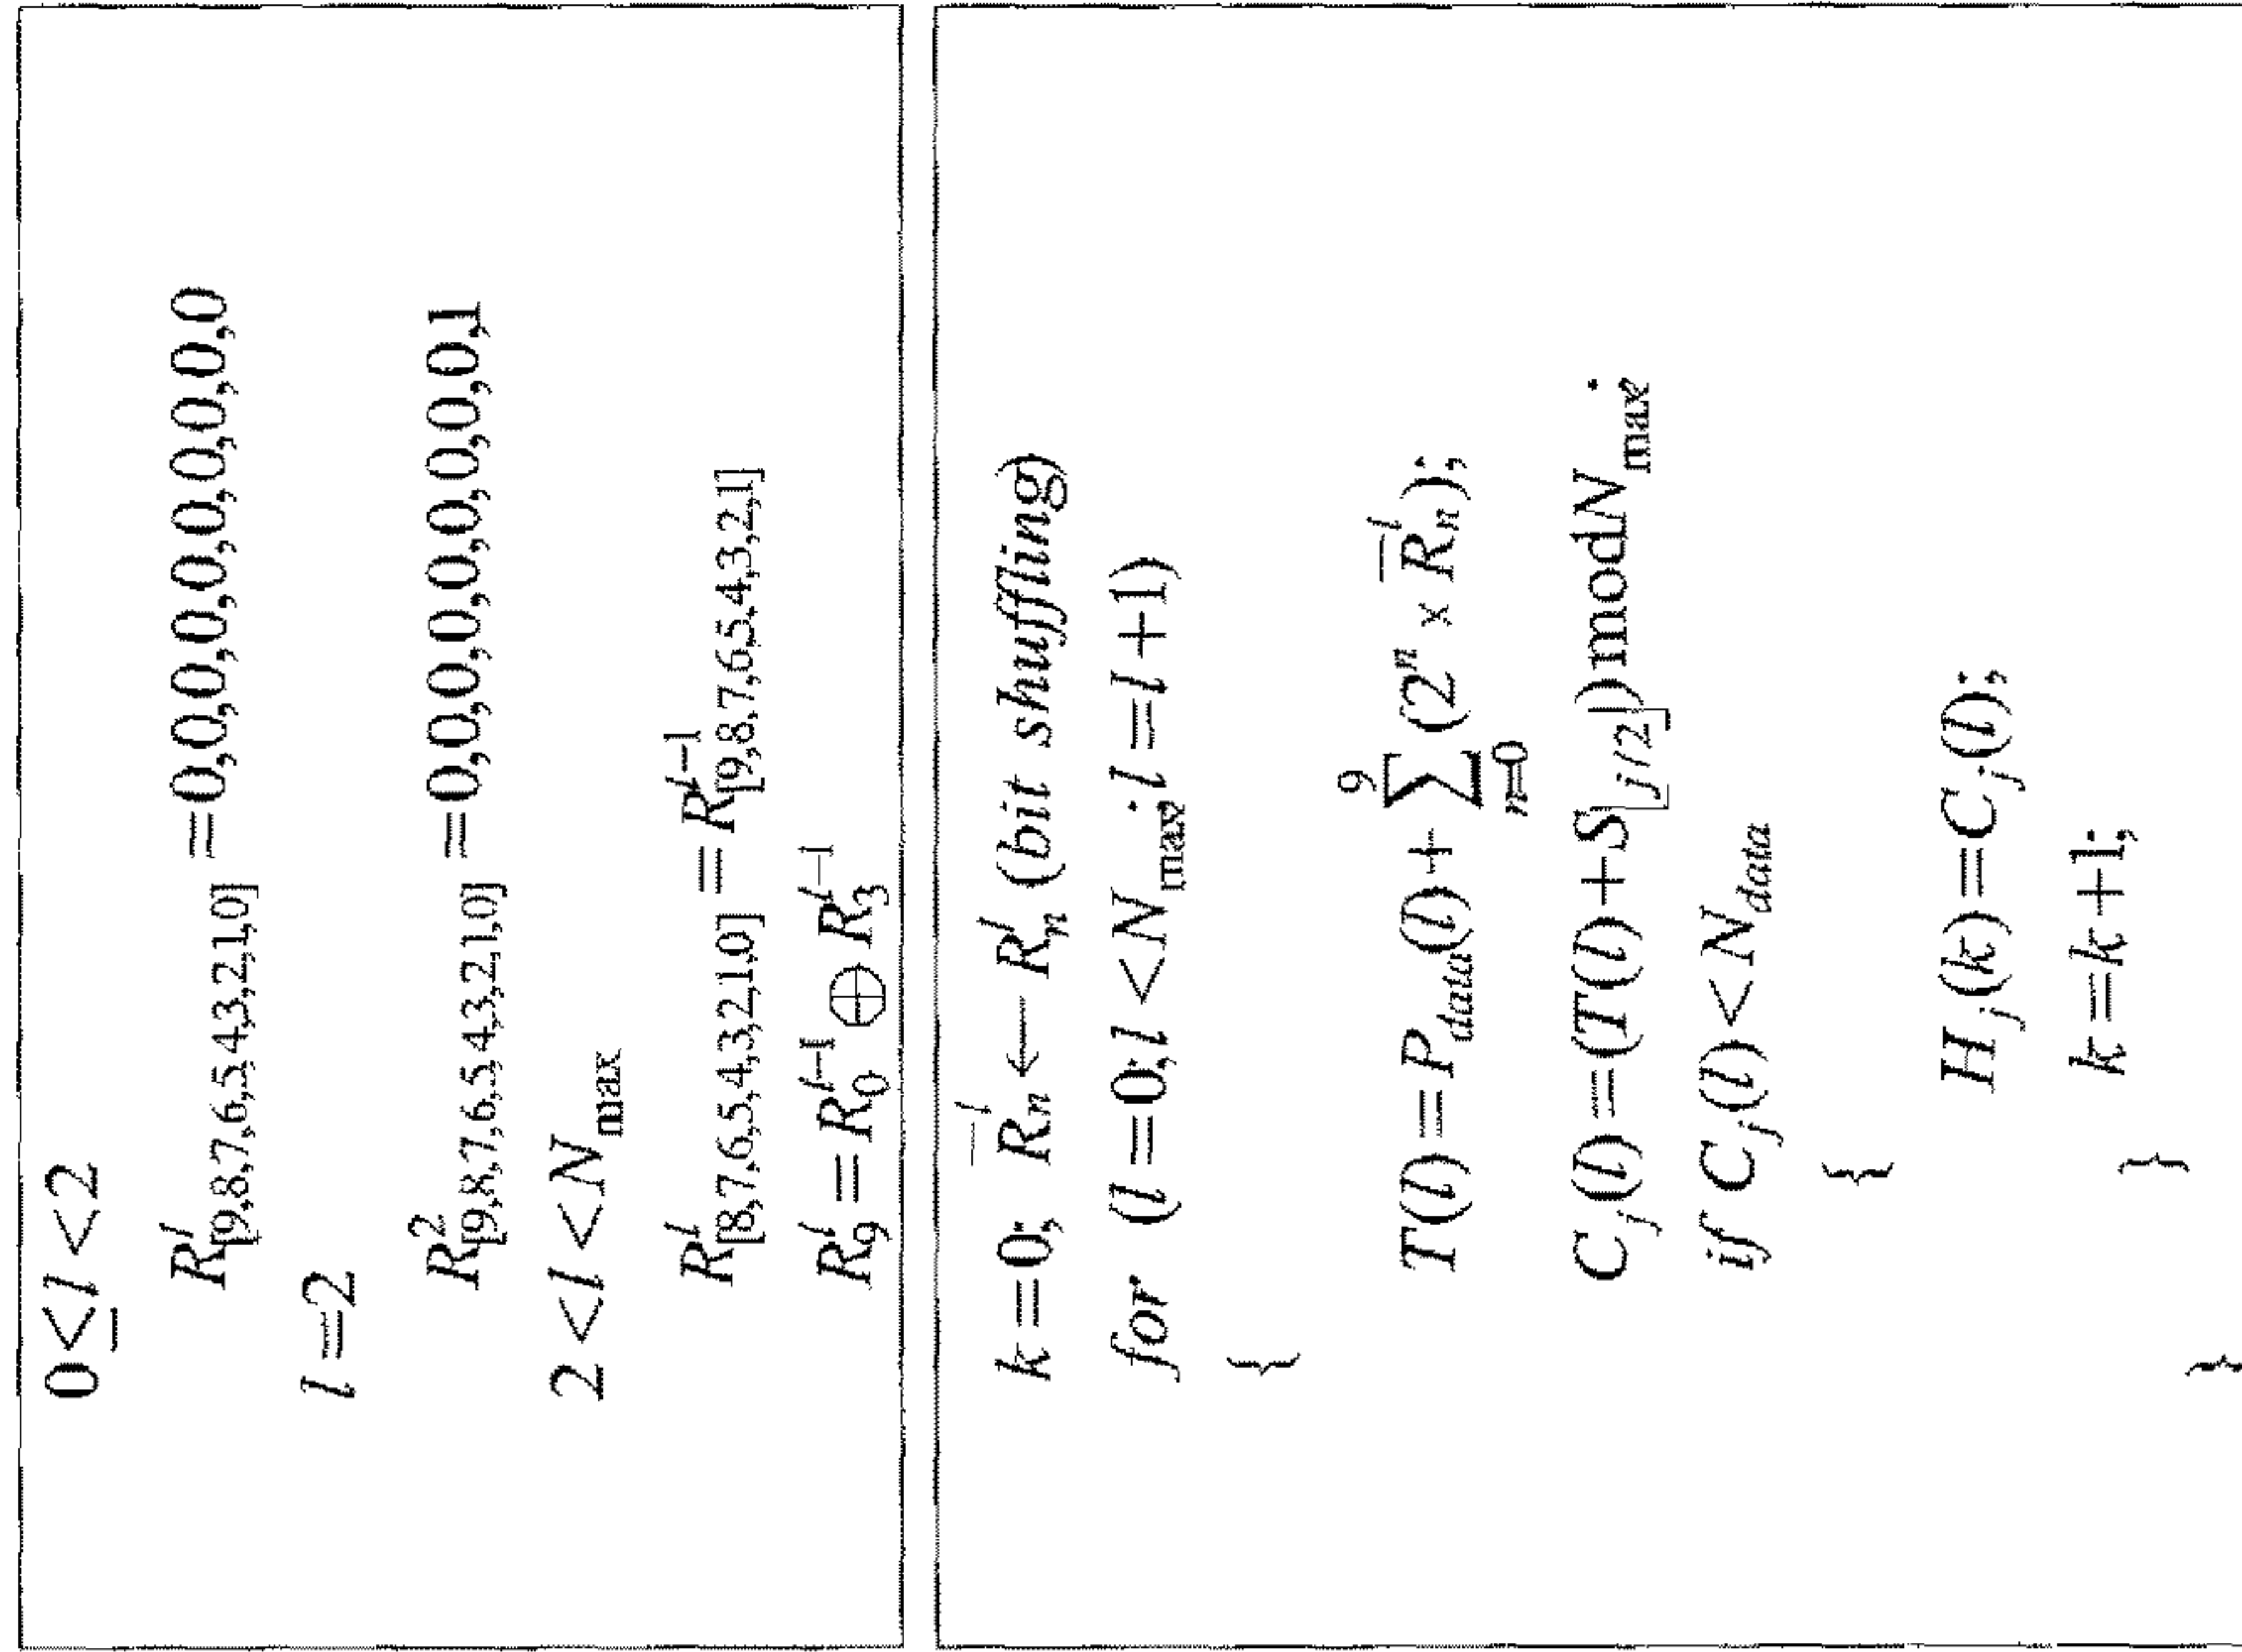 0≤l<2
R^l_[9,8,7,6,5,4,3,2,1,0] =0,0,0,0,0,0,0,0,0,0
l=2
R^2_[9,8,7,6,5,4,3,2,1,0] =0,0,0,0,0,0,0,0,0,1
2<l<N_max
R^l_[8,7,6,5,4,3,2,1,0] =R^{l-1}_[9,8,7,6,5,4,3,2,1]
R^l_9=R^{l-1}_0 ⊕ R^{l-1}_3
k=0; R̅^l_n ← R^l_n (bit shuffling)
for (l=0;l<N_max;l=l+1)
{
T(l)=P_data(l)+∑_{n=0}^{9}(2^n × R̅^l_n);
C_j(l)=(T(l)+S_⌊j/2⌋)modN_max;
if C_j(l)<N_data
{
H_j(k)=C_j(l);
k=k+1;
}
}